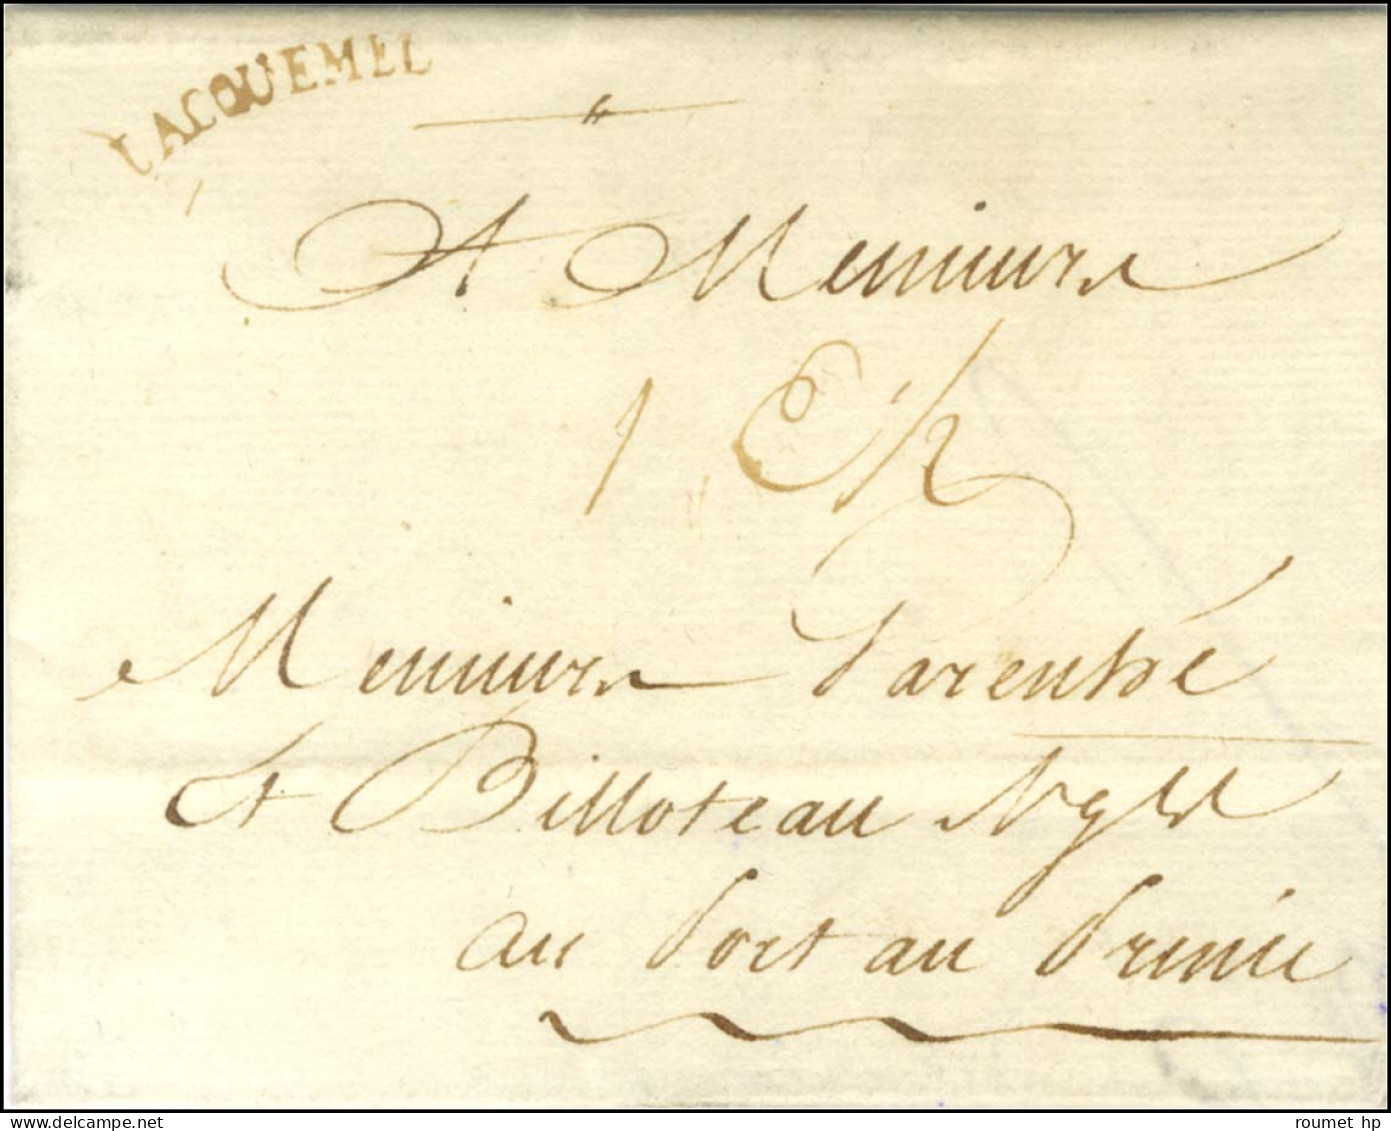 JACQUEMEL
A Messieurs
1
Messieurs Parenthé
et Billoteau Nég.ts
au Port au Prince
www.delcampe.net
roumet hp